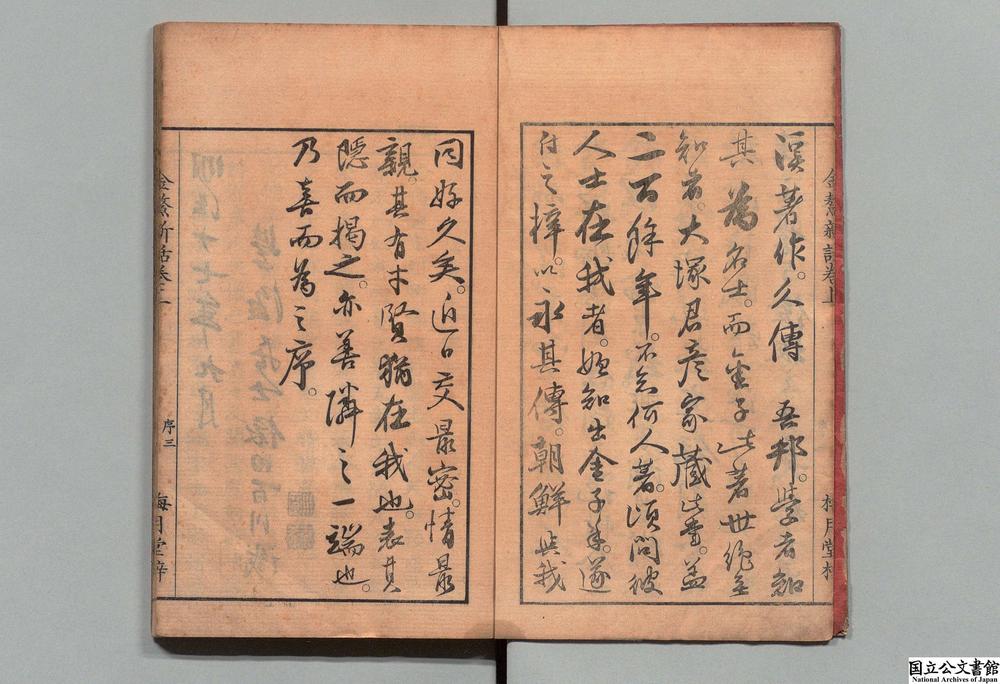 金鰲新話卷上
梅月堂梓
溪著作。久傳 吾邦。學者知
其為名士。而金子此著世絶無
知者。大塚君彦家藏此書。蓋
二百餘年。不知何人著。頃問彼
人士在我者。始知出金子手。遂
付之梓。以永其傳。朝鮮與我
同好久矣。近日交最密。情最
親。其有才賢猶在我也。表其
隱而揭之。亦善隣之一端也。
乃喜而為之序。
金鰲新話卷上
序三
梅月堂梓
国立公文書館
National Archives of Japan